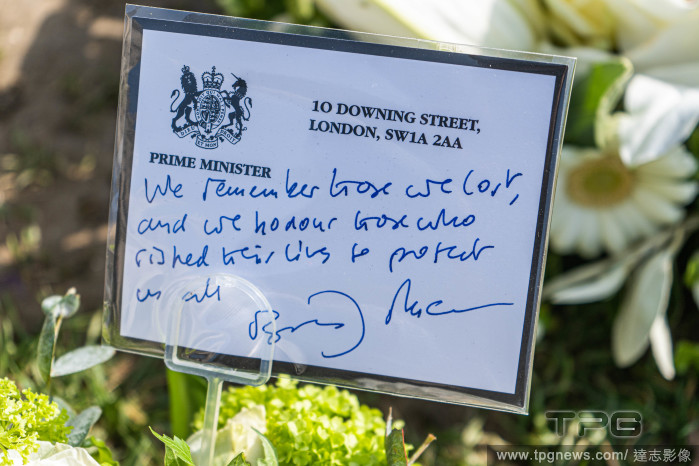 10 DOWNING STREET,
LONDON, SW1A 2AA
PRIME MINISTER
We remember those we lost,
and we honour those who
risked their lives to protect
us all
TPG
www.tpgnews.com / 達志影像